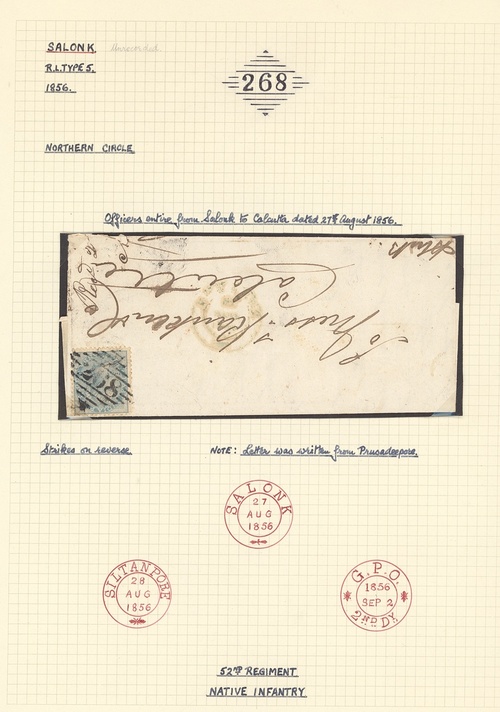 SALONK. Unrecorded.
R.L.TYPE 5.
1856.
268
NORTHERN CIRCLE
Officers entire from Salonk to Calcutta dated 27th August 1856.
To
Calcutta
268
Strikes on reverse.
NOTE: Letter was written from Prusadeepore.
SALONK
27
AUG
1856
SILTANPORE
28
AUG
1856
G.P.O.
1856
SEP 2
2ND DY
52ND REGIMENT
NATIVE INFANTRY